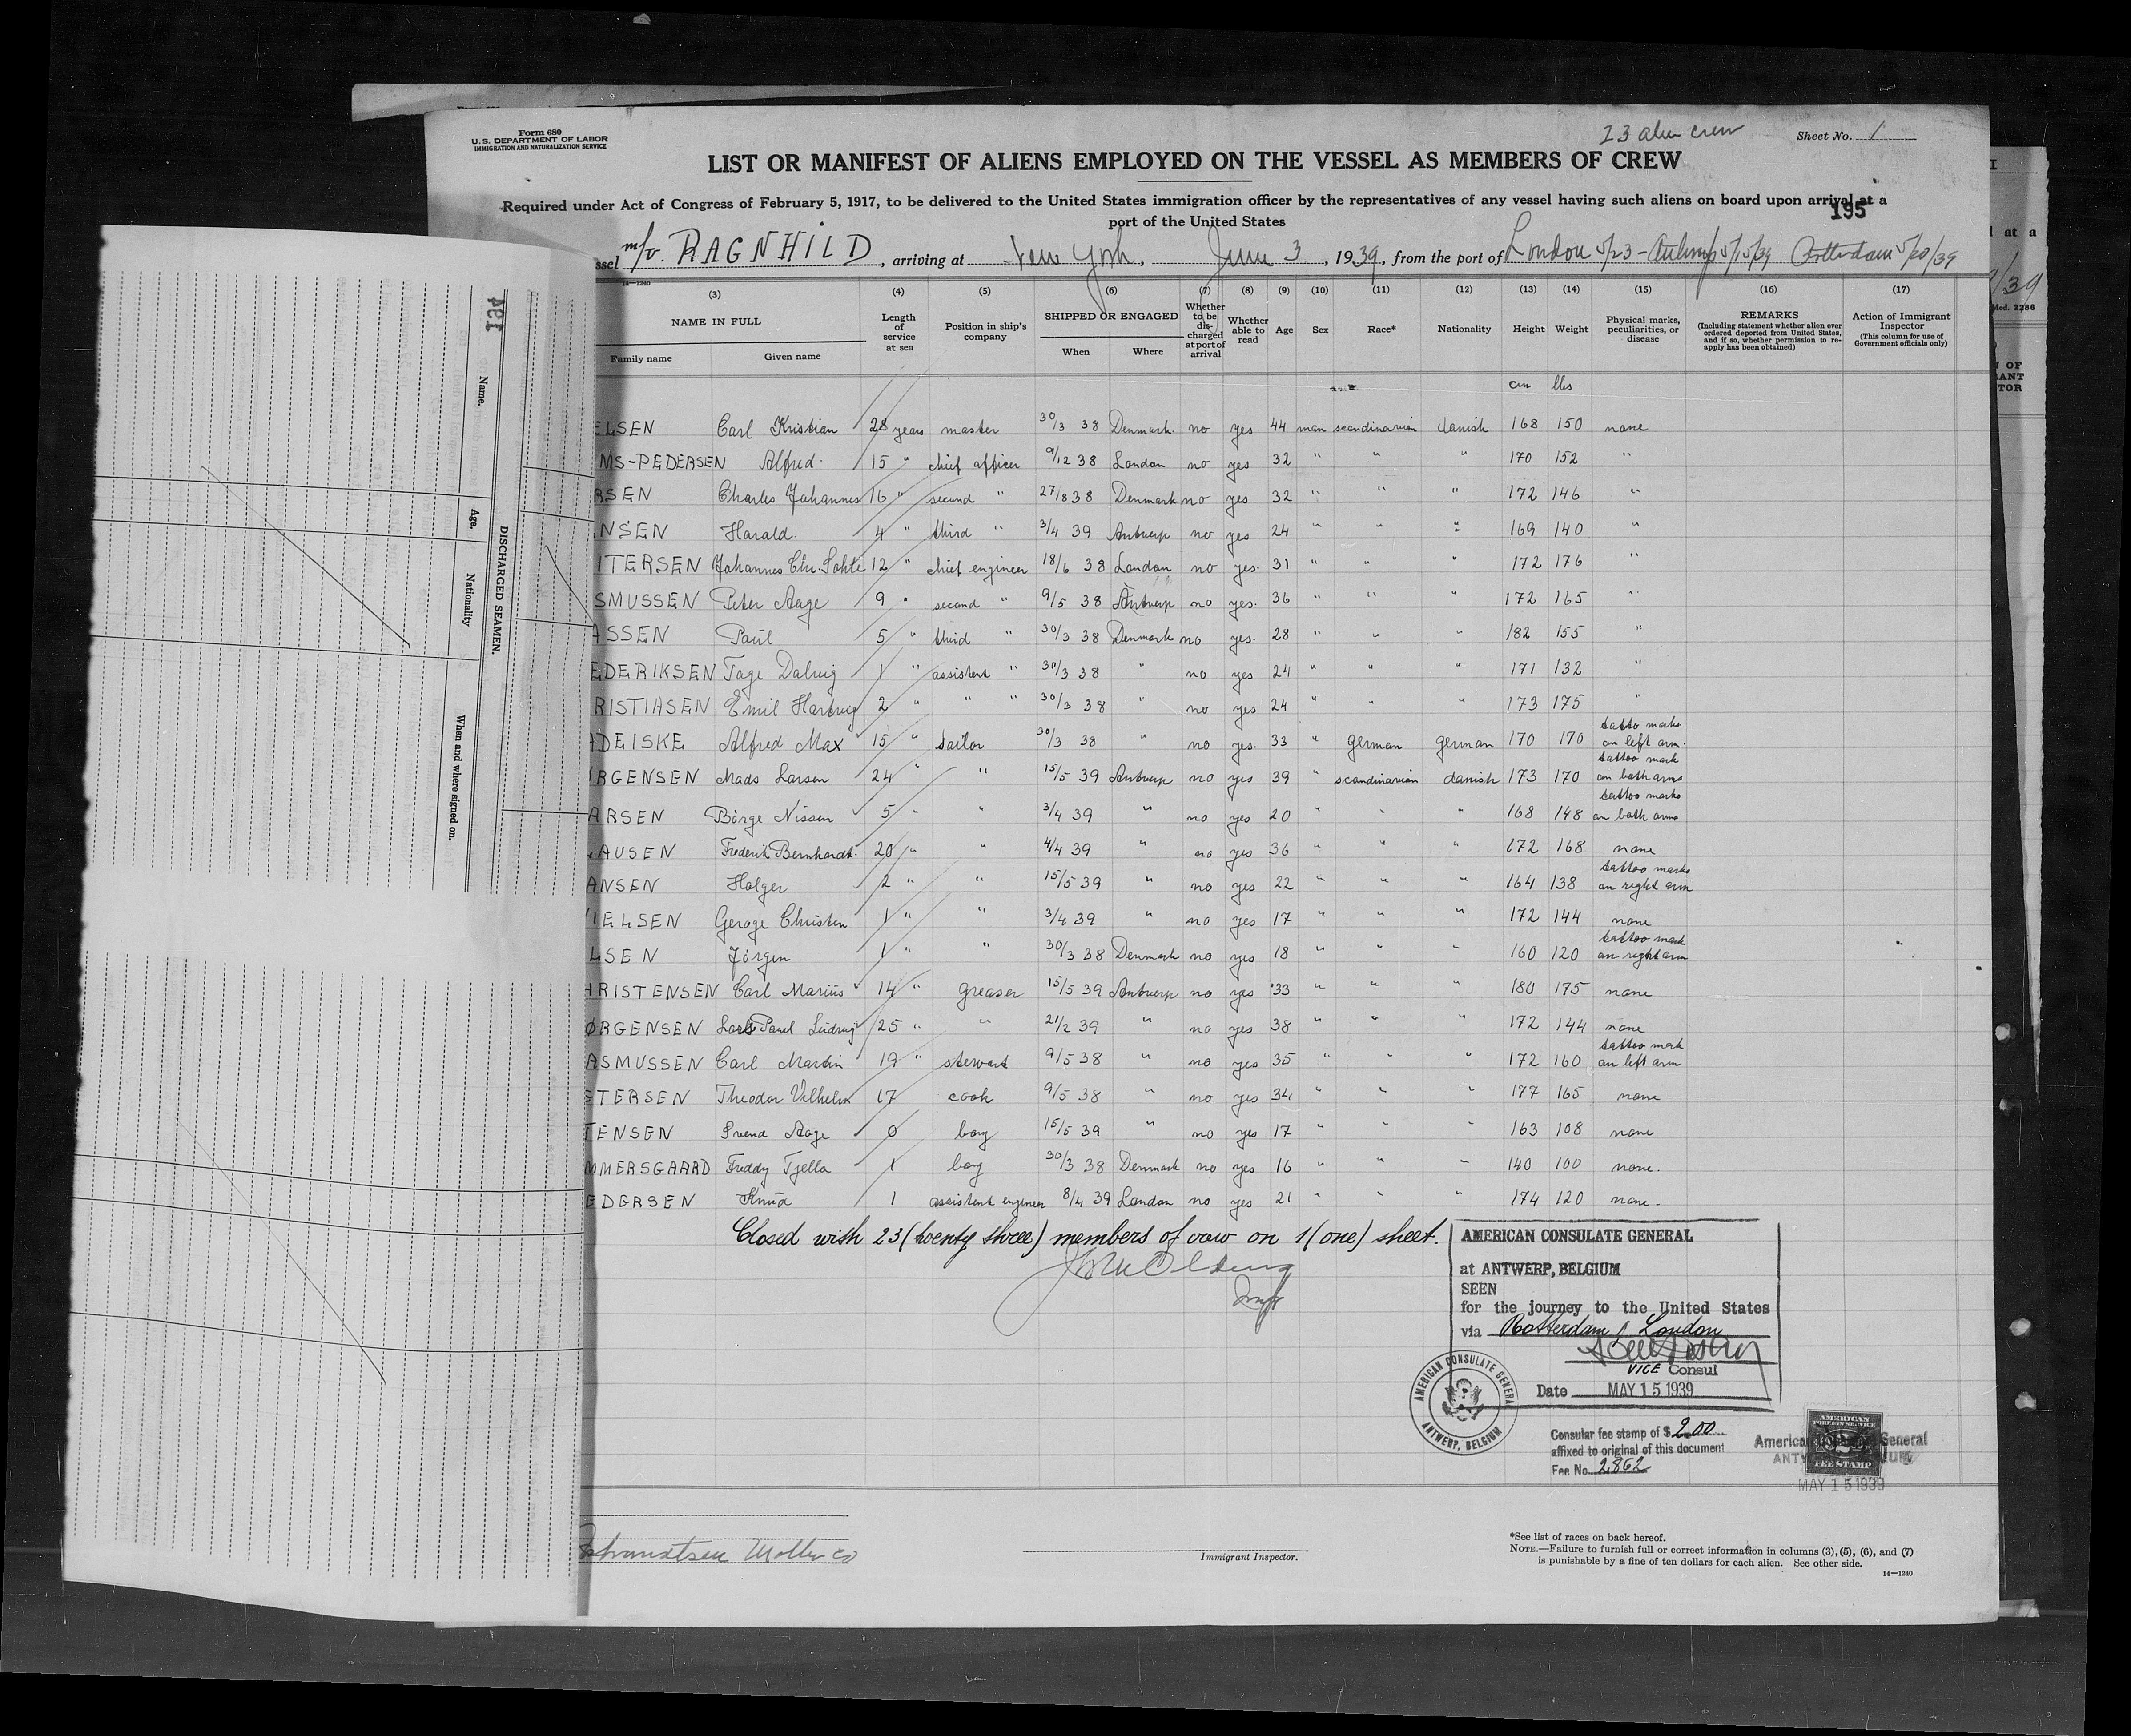 Form 680
U. S. DEPARTMENT OF LABOR
IMMIGRATION AND NATURALIZATION SERVICE
23 alien crew
Sheet No. 1
LIST OR MANIFEST OF ALIENS EMPLOYED ON THE VESSEL AS MEMBERS OF CREW
Required under Act of Congress of February 5, 1917, to be delivered to the United States immigration officer by the representatives of any vessel having such aliens on board upon arrival at a
port of the United States
195
ssel m/v. RAGNHILD, arriving at New York, June 3, 1939, from the port of London 5/23 - Antwerp 5/15/39 Rotterdam 5/20/39
14—1240
(3) (4) (5) (6) (7) (8) (9) (10) (11) (12) (13) (14) (15) (16) (17)
NAME IN FULL
Family name Given name
Length of service at sea
Position in ship's company
SHIPPED OR ENGAGED
When Where
Whether to be discharged at port of arrival
Whether able to read
Age Sex Race* Nationality Height Weight
Physical marks, peculiarities, or disease
REMARKS
(Including statement whether alien ever ordered deported from United States, and if so, whether permission to reapply has been obtained)
Action of Immigrant Inspector
(This column for use of Government officials only)
cm lbs
ELSEN Carl Kristian 28 years master 30/3 38 Denmark no yes 44 man scandinavian danish 168 150 none
MS-PEDERSEN Alfred. 15 " chief officer 9/12 38 London no yes 32 " " " 170 152 "
RSEN Charles Johannes 16 " second " 27/8 38 Denmark no yes 32 " " " 172 146 "
NSEN Harald. 4 " third " 3/4 39 Antwerp no yes 24 " " " 169 140 "
TERSEN Johannes Chr. 12 " chief engineer 18/6 38 London no yes. 31 " " " 172 176 "
SMUSSEN Peter Aage 9 " second " 9/5 38 Antwerp no yes. 36 " " " 172 165 "
ASSEN Paul 5 " third " 30/3 38 Denmark no yes. 28 " " " 182 155 "
EDERIKSEN Tage Dalvig 1 " assistent " 30/3 38 " no yes 24 " " " 171 132 "
RISTIASEN Emil Hartvig 2 " " " 30/3 38 " no yes 24 " " " 173 175 "
DEISKE Alfred Max 15 " sailor 30/3 38 " no yes. 33 " german german 170 170 tatto marks on left arm.
RGENSEN Mads Larsen 24 " " 15/5 39 Antwerp no yes 39 " scandinavian danish 173 170 tattoo mark on both arms
ARSEN Börge Nissen 5 " " 3/4 39 " no yes 20 " " " 168 148 tattoo marks on both arms
AUSEN Frederik Bernhardt. 20 " " 4/4 39 " no yes 36 " " " 172 168 none
ANSEN Holger 2 " " 15/5 39 " no yes 22 " " " 164 138 tattoo marks on right arm
IELSEN Geroge Christen 1 " " 3/4 39 " no yes 17 " " " 172 144 none
LSEN Jörgen 1 " " 30/3 38 Denmark no yes 18 " " " 160 120 tattoo mark on right arm
HRISTENSEN Carl Marius 14 " greaser 15/5 39 Antwerp no yes 33 " " " 180 175 none
ØRGENSEN Paul Ludvig 25 " " 21/2 39 " no yes 38 " " " 172 144 none
ASMUSSEN Carl Martin 19 " stewart 9/5 38 " no yes 35 " " " 172 160 tattoo mark on left arm
ETERSEN Theodor Vilhelm 17 cook 9/5 38 " no yes 34 " " " 177 165 none
TENSEN Svend Aage 0 boy 15/5 39 " no yes 17 " " " 163 108 none
MMERSGAARD Freddy Tjella 1 boy 30/3 38 Denmark no yes 16 " " " 140 100 none.
EDERSEN Knud 1 assistent engineer 8/4 39 London no yes 21 " " " 174 120 none.
Closed with 23 (twenty three) members of crow on 1 (one) sheet.
AMERICAN CONSULATE GENERAL
at ANTWERP, BELGIUM
SEEN
for the journey to the United States
via Rotterdam, London
VICE Consul
Date MAY 15 1939
AMERICAN CONSULATE GENERAL
ANTWERP, BELGIUM
Consular fee stamp of $ 2.00
affixed to original of this document
Fee No. 2862
AMERICAN
FOREIGN SERVICE
FEE STAMP
American Consulate General
MAY 15 1939
Immigrant Inspector.
*See list of races on back hereof.
NOTE.—Failure to furnish full or correct information in columns (3), (5), (6), and (7)
is punishable by a fine of ten dollars for each alien. See other side.
14—1240
DISCHARGED SEAMEN.
Name.
Age.
Nationality
When and where signed on.
191
at a
/39
Med. 2286
OF
ANT
TOR